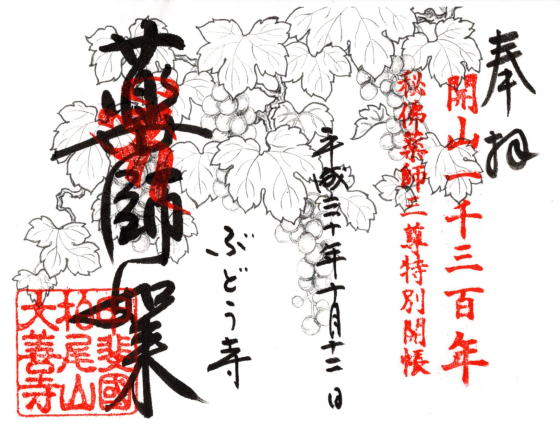 奉拝
開山一千三百年
秘佛薬師三尊特別開帳
平成三十年十月十二日
ぶどう寺
薬師如来
甲斐國
柏尾山
大善寺